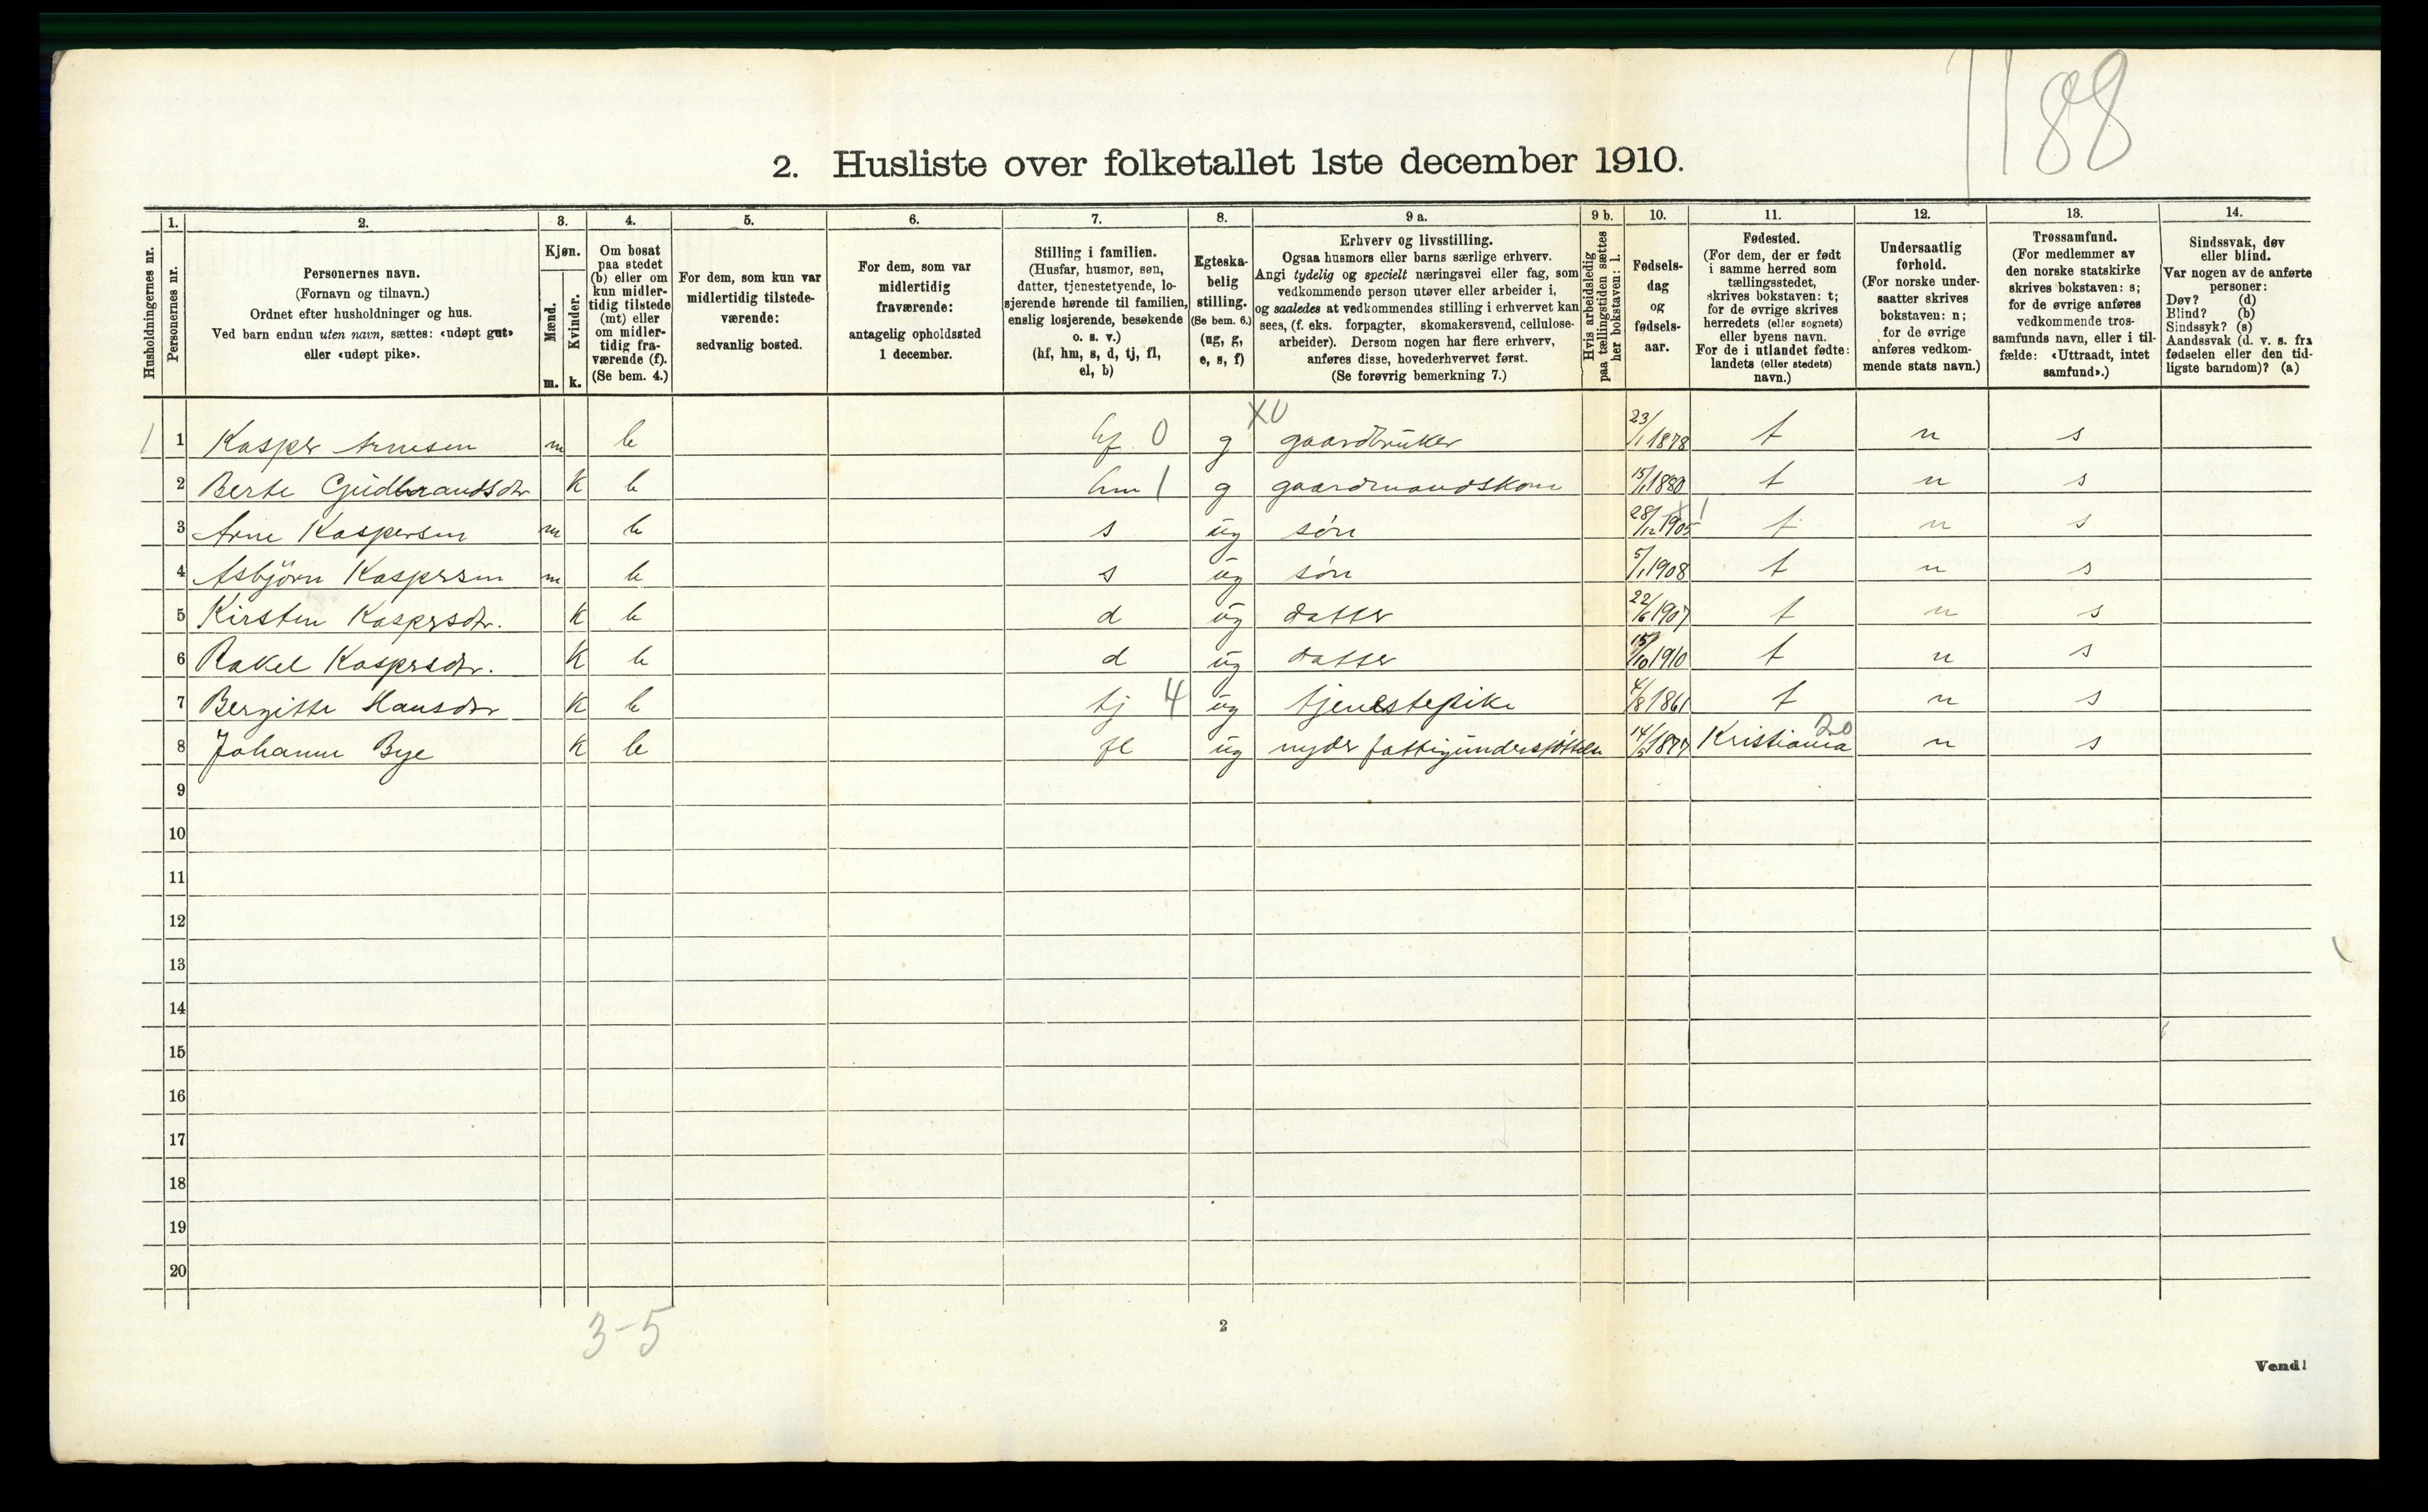 1188
2. Husliste over folketallet 1ste december 1910.
1. 2. 3. 4. 5. 6. 7. 8. 9 a. 9 b. 10. 11. 12. 13. 14.
Husholdningernes nr.
Personernes nr.
Personernes navn.
(Fornavn og tilnavn.)
Ordnet efter husholdninger og hus.
Ved barn endnu uten navn, sættes: «udøpt gut»
eller «udøpt pike».
Kjøn.
Mænd.
Kvinder.
m. k.
Om bosat
paa stedet
(b) eller om
kun midler-
tidig tilstede
(mt) eller
om midler-
tidig fra-
værende (f).
(Se bem. 4.)
For dem, som kun var
midlertidig tilstede-
værende:
sedvanlig bosted.
For dem, som var
midlertidig
fraværende:
antagelig opholdssted
1 december.
Stilling i familien.
(Husfar, husmor, søn,
datter, tjenestetyende, lo-
sjerende hørende til familien,
enslig losjerende, besøkende
o. s. v.)
(hf, hm, s, d, tj, fl,
el, b)
Egteska-
belig
stilling.
(Se bem. 6.)
(ug, g,
e, s, f)
Erhverv og livsstilling.
Ogsaa husmors eller barns særlige erhverv.
Angi tydelig og specielt næringsvei eller fag, som
vedkommende person utøver eller arbeider i,
og saaledes at vedkommendes stilling i erhvervet kan
sees, (f. eks. forpagter, skomakersvend, cellulose-
arbeider). Dersom nogen har flere erhverv,
anføres disse, hovederhvervet først.
(Se forøvrig bemerkning 7.)
Hvis arbeidsledig
paa tællingstiden sættes
her bokstaven: l.
Fødsels-
dag
og
fødsels-
aar.
Fødested.
(For dem, der er født
i samme herred som
tællingsstedet,
skrives bokstaven: t;
for de øvrige skrives
herredets (eller sognets)
eller byens navn.
For de i utlandet fødte:
landets (eller stedets)
navn.)
Undersaatlig
forhold.
(For norske under-
saatter skrives
bokstaven: n;
for de øvrige
anføres vedkom-
mende stats navn.)
Trossamfund.
(For medlemmer av
den norske statskirke
skrives bokstaven: s;
for de øvrige anføres
vedkommende tros-
samfunds navn, eller i til-
fælde: «Uttraadt, intet
samfund».)
Sindssvak, døv
eller blind.
Var nogen av de anførte
personer:
Døv? (d)
Blind? (b)
Sindssyk? (s)
Aandssvak (d. v. s. fra
fødselen eller den tid-
ligste barndom)? (a)
X0
1 1 Kasper Arnesen m b hf 0 g gaardbruker 23/1 1878 t n s
2 Berte Gudbrandsdtr k b hm 1 g gaardmandskone 15/1 1880 t n s
3 Arne Kaspersen m b s ug søn 28/12 1905 t n s
4 Asbjörn Kaspersen m b s ug søn 5/1 1908 t n s
5 Kirsten Kaspersdtr. k b d ug datter 22/6 1907 t n s
6 Rakel Kaspersdtr. k b d ug datter 15/10 1910 t n s
7 Bergitte Hansdtr k b tj 4 ug tjenestepike 4/8 1861 t n s
20
8 Johanne Bye k b fl ug nyder fattigunderstøttelse 1877 Kristiania n s
9
10
11
12
13
14
15
16
17
18
19
20
3-5
2
Vend!